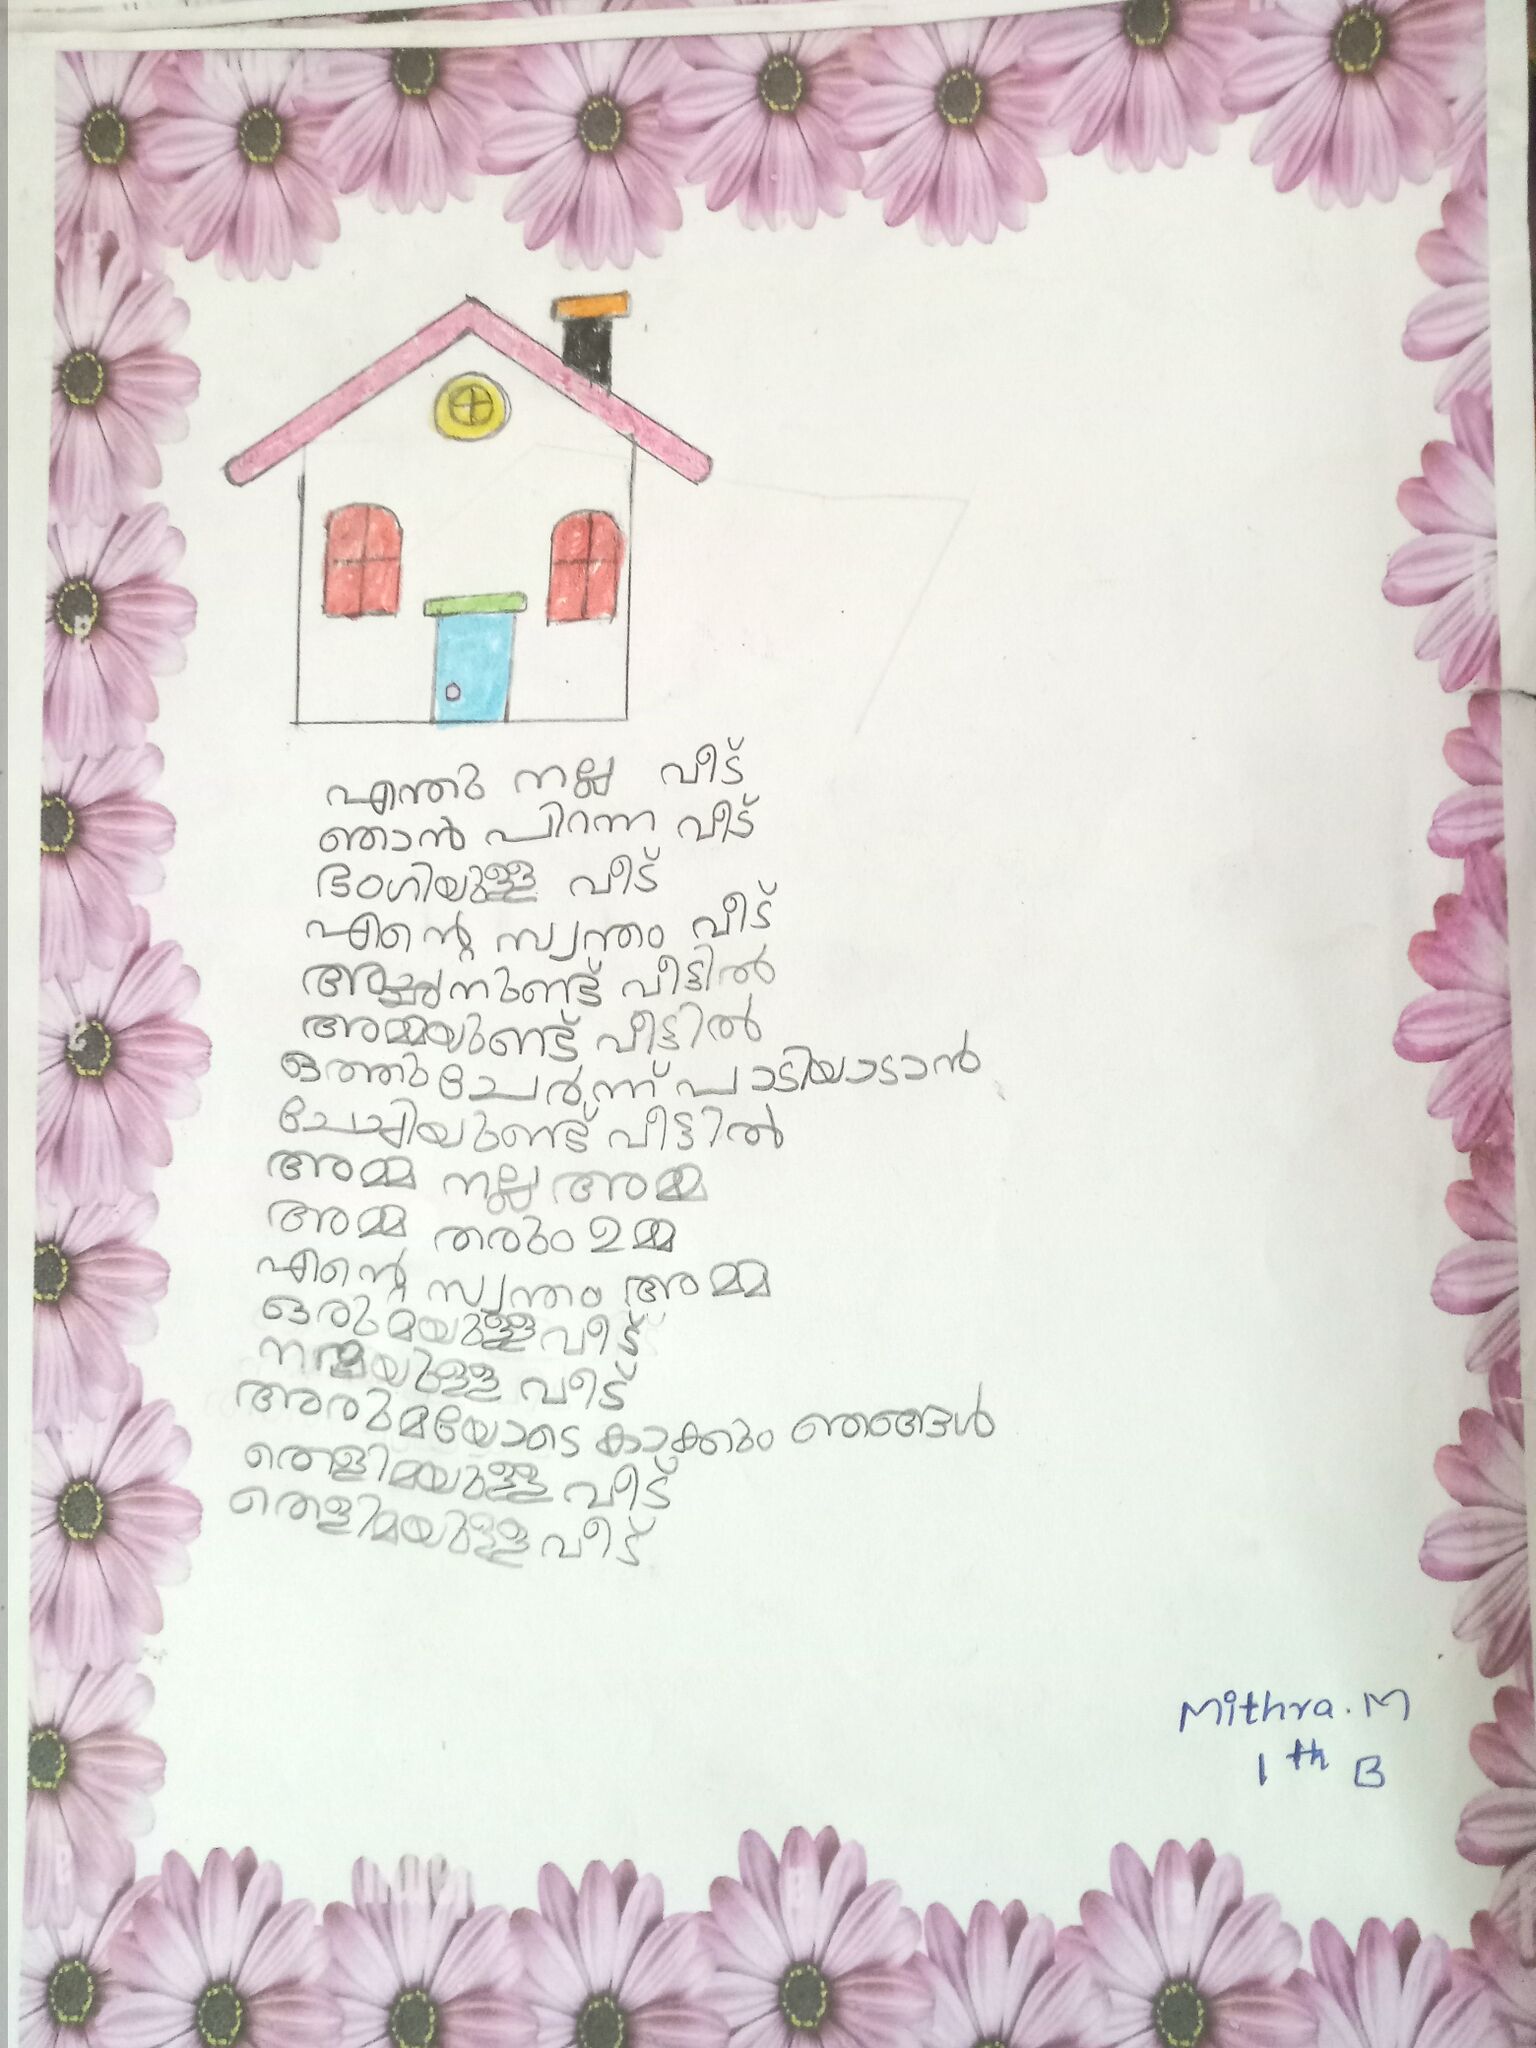 എന്തു നല്ല വീട്
ഞാൻ പിറന്ന വീട്
ഭംഗിയുള്ള വീട്
എന്റെ സ്വന്തം വീട്
അച്ഛനുണ്ട് വീട്ടിൽ
അമ്മയുണ്ട് വീട്ടിൽ
ഒത്തുചേർന്ന് പാടിയാടാൻ
ചേച്ചിയുണ്ട് വീട്ടിൽ
അമ്മ നല്ല അമ്മ
അമ്മ തരും ഉമ്മ
എന്റെ സ്വന്തം അമ്മ
ഒരുമയുള്ള വീട്
നന്മയുള്ള വീട്
അരുമയോടെ കാക്കും ഞങ്ങൾ
തെളിമയുള്ള വീട്
തെളിമയുള്ള വീട്
Mithra. M
1th B